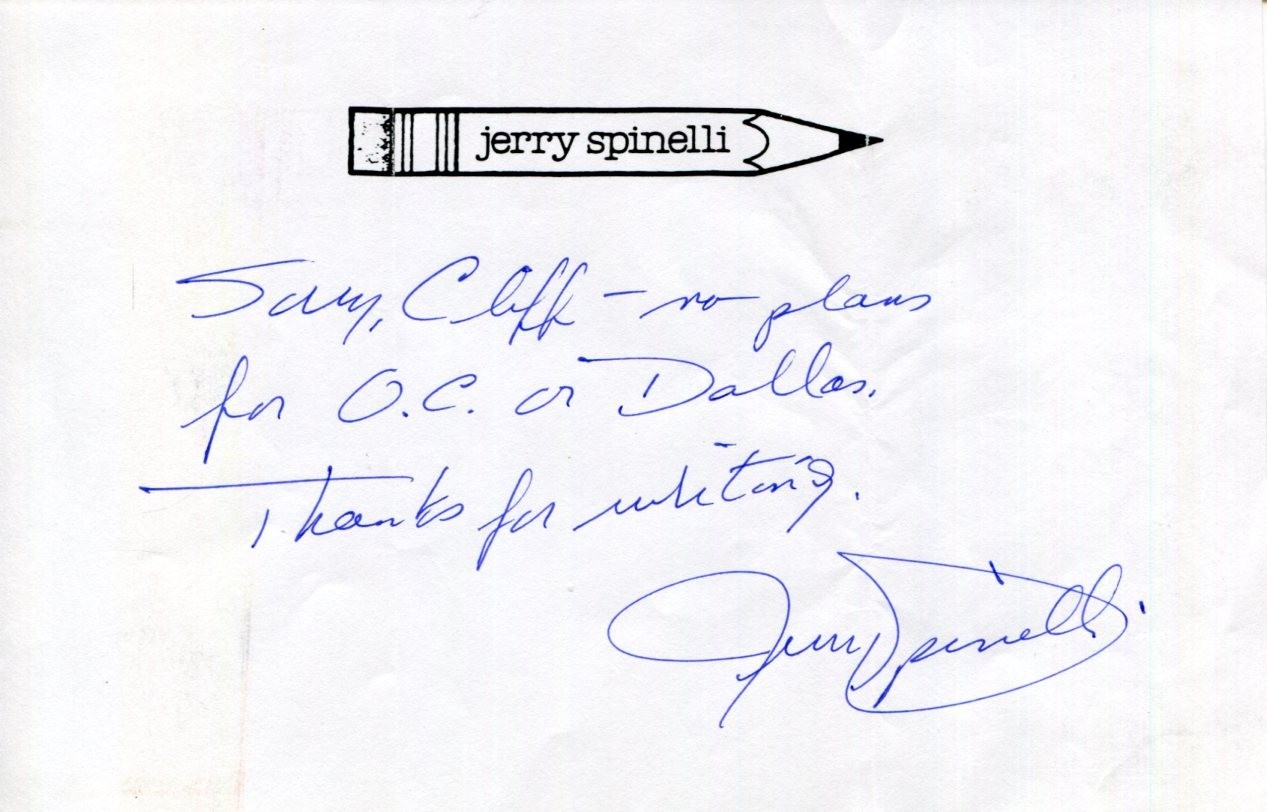 jerry spinelli
Sorry, Cliff – no plans
for O.C. or Dallas.
Thanks for writing.
Jerry Spinelli